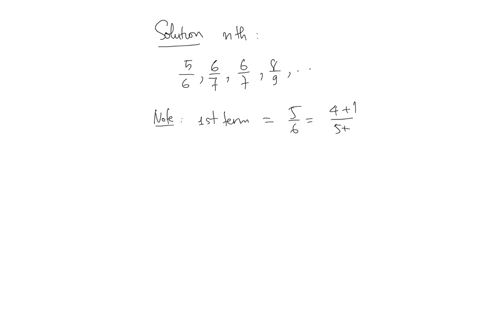 Solution nth :
5/6 , 6/7 , 6/7 , 8/9 , ..
Note : 1st term = 5/6 = 4+1/5+